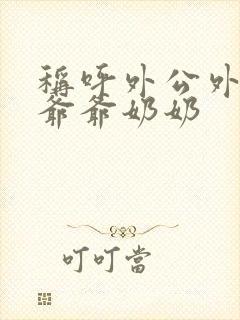 稱呼外公外
爺爺奶奶
叮叮當